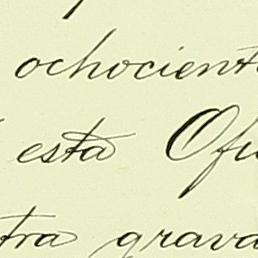 ochocient
esta Ofi
tra grava